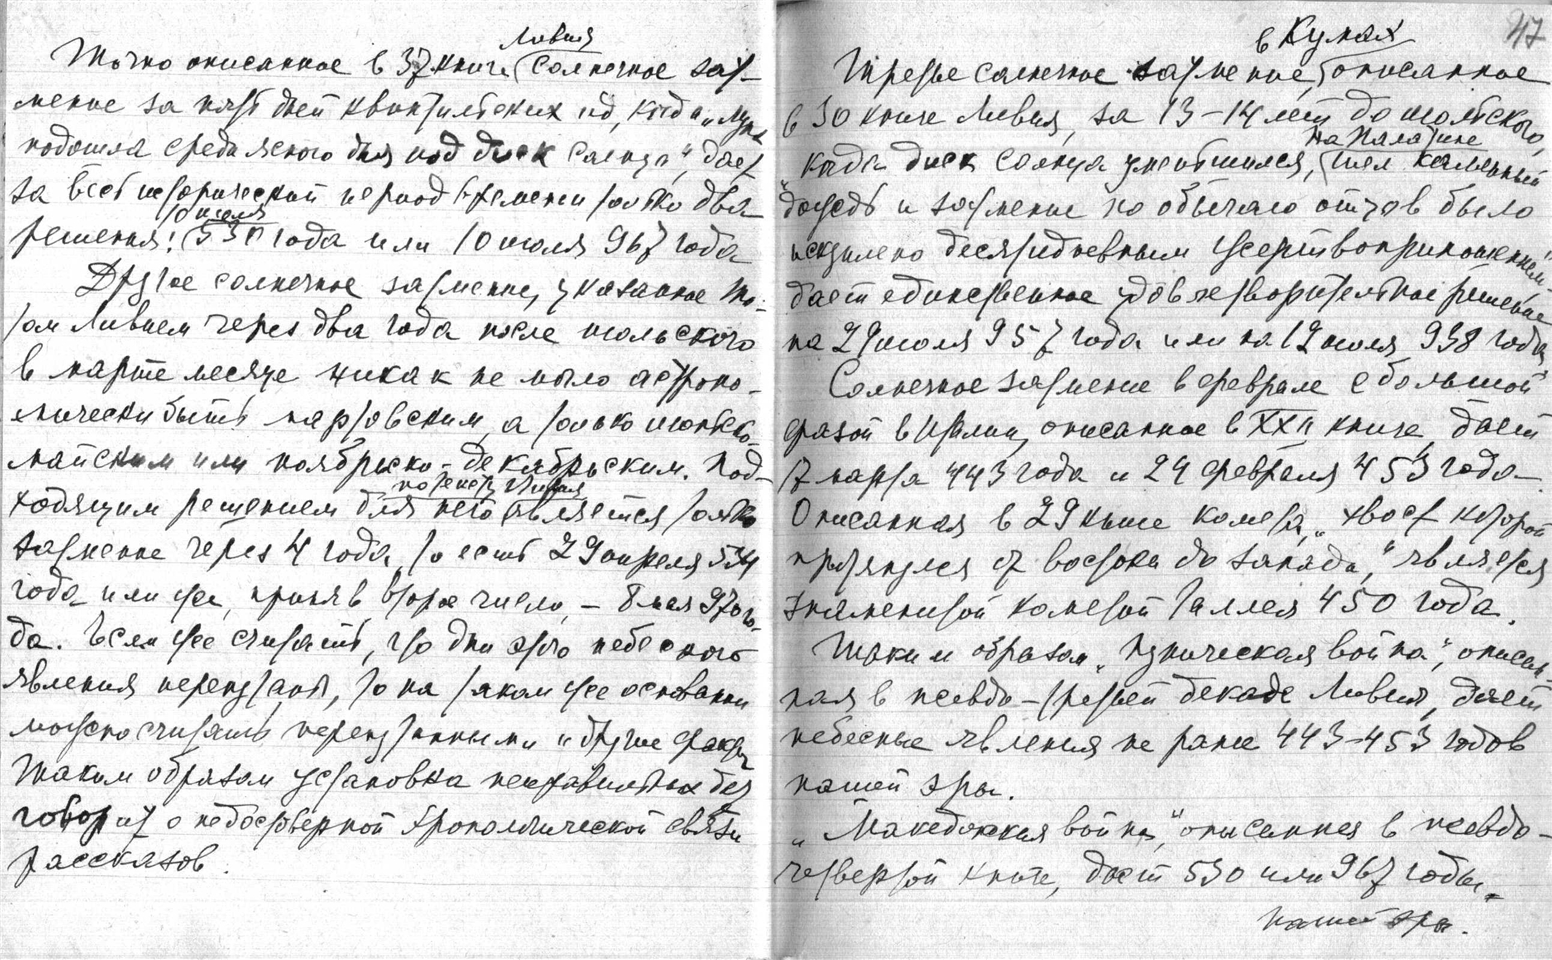 Ливия
Точно описанное в 37 книге солнечное зат-
мение за пять дней квинтильских ид, когда „луна
подошла среди ясного дня под диск солнца“, дает
за весь исторический период времени только два
10 июля
решения: 530 года или 10 июля 967 года
Другое солнечное затмение, указанное Ти-
том Ливием через два года после июльского
в марте месяце никак не могло астроно-
мически быть мартовским, а только июньско-
майским или ноябрьско-декабрьским. Под-
ходящим решением для него является только
затмение через 4 года, то есть 29 апреля 534
года или же, приняв второе число, – 8 мая 970 го-
да. Если же считать, что дни этого небесного
явления перепутаны, то на таком же основании
можно считать перепутанными и другие факты
Таким образом установка неправильных дат
говорит о недостоверной хронологической связи
рассказов.
47
в Кумах
Третье солнечное затмение, описанное
в 30 книге Ливия, за 13-14 лет до июльского,
на Палатине
„когда диск солнца уменьшился, шел каменный
дождь и затмение по обычаю отцов было
искуплено десятидневным жертвоприношением“-
дает единственное удовлетворительное решение
на 29 июля 957 года или на 12 июля 938 года
Солнечное затмение в феврале с большой
фазой в Италии, описанное в XXII книге, дает
17 марта 443 года и 24 февраля 453 года
Описанная в 29 книге комета, „хвост которой
протянулся от востока до запада,“ является
знаменитой кометой Галлея 450 года.
Таким образом „Пуническая война“, описан-
ная в псевдо-третьей декаде Ливия, дает
небесные явления не ранее 443-453 годов
нашей эры.
„Македонская война,“ описанная в псевдо-
четвертой книге, дает 530 или 967 годы
нашей эры.